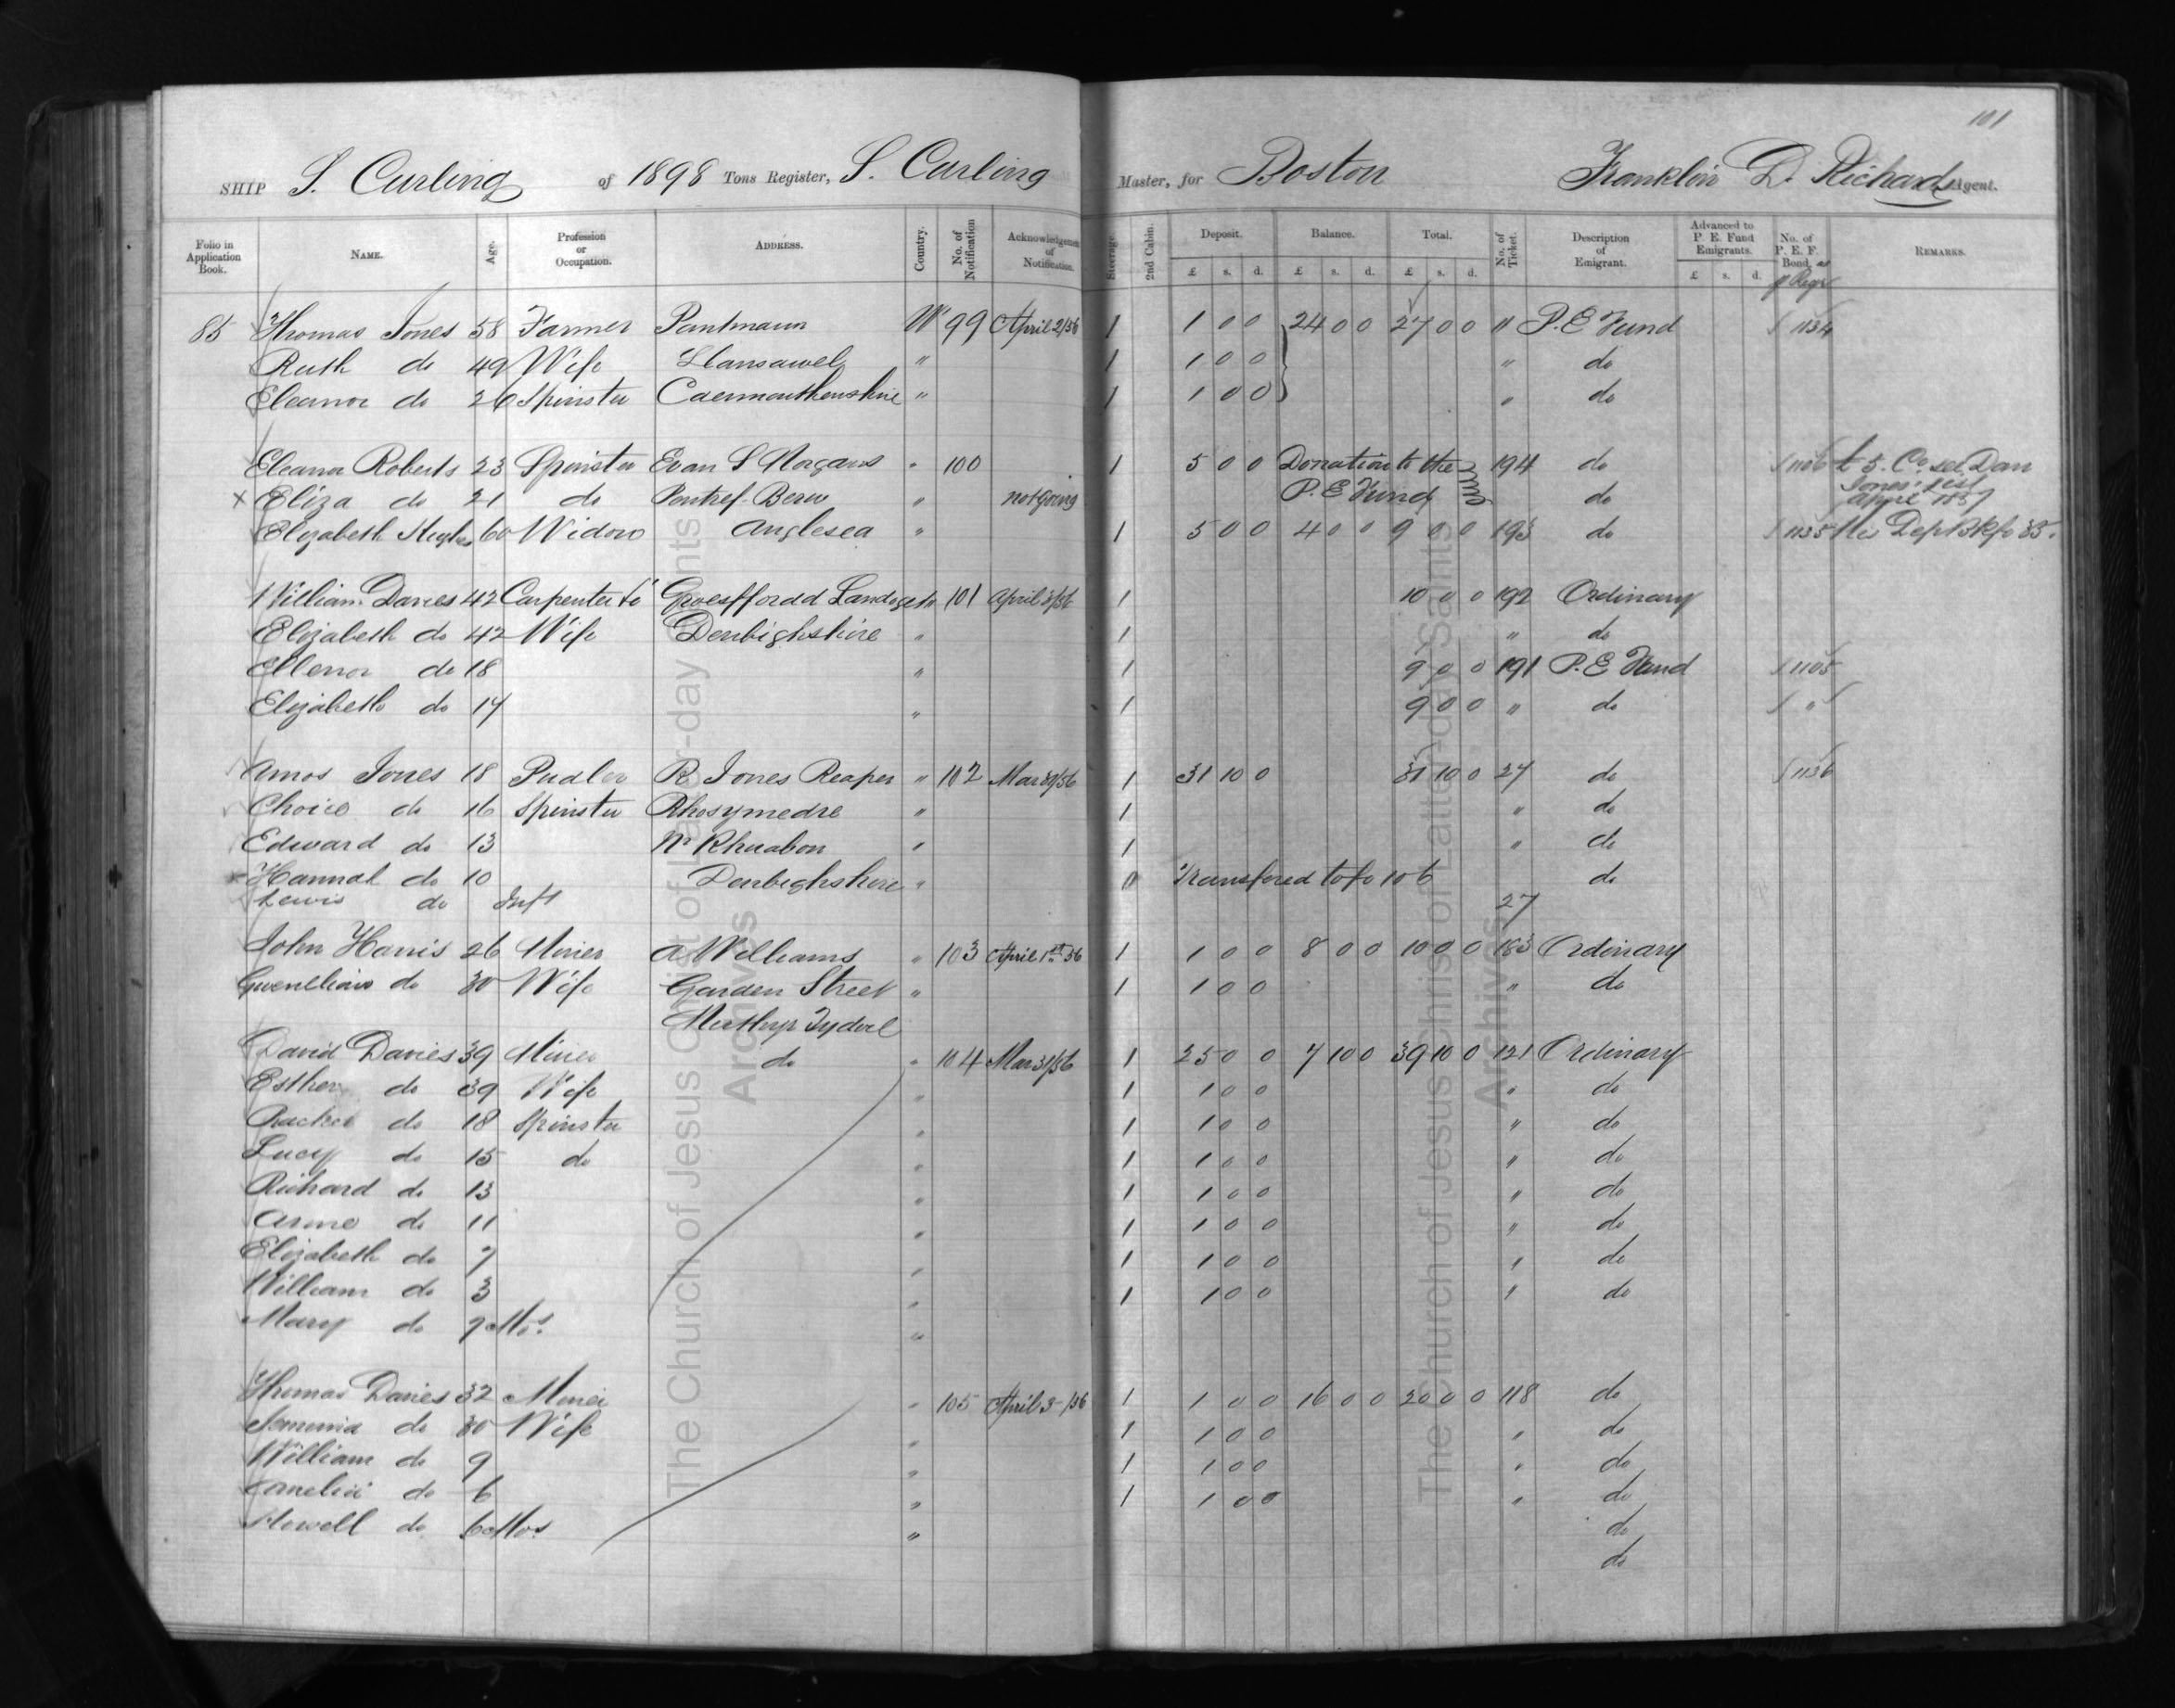 101
SHIP S. Curling of 1898 Tons Register, S. Curling Master, for Boston Franklin D. Richards Agent.
Folio in Application Book. NAME. Age. Profession or Occupation. ADDRESS. Country. No. of Notification Acknowledgement of Notification. Steerage. 2nd Cabin. Deposit. Balance. Total. No. of Ticket. Description of Emigrant. Advanced to P. E. Fund Emigrants. No. of P. E. F. Bond, REMARKS.
£ s. d. £ s. d. £ s. d. £ s. d.
85 Thomas Jones 58 Farmer Pantmawn W 99 April 2/56 1 1 0 0 24 0 0 27 0 0 " P. E Fund 1134
Ruth do 49 Wife Llansawel " 1 1 0 0 " do
Eleanor do 26 Spinster Caermarthenshire " 1 1 0 0 " do
Eleanor Roberts 23 Spinster Evan S Morgans " 100 1 5 0 0 Donation to the 194 do 1106 to 5. Co. see Dan
x Eliza do 21 do Pentref Berw " not going P. E Fund do Jones' list April 1857
Elizabeth Hughes 60 Widow Anglesea " 1 5 0 0 4 0 0 9 0 0 193 do 1135 Dept Bk fo 35.
William Davies 42 Carpenter Groesffordd " 101 April 3/56 1 10 0 0 192 Ordinary
Elizabeth do 42 Wife Denbighshire " 1 " do
Ellenor do 18 " 1 9 0 0 191 P. E Fund 1105
Elizabeth do 14 " 1 9 0 0 " do "
Amos Jones 18 Pudler R Jones Reaper " 102 Mar 30/56 1 31 10 0 31 10 0 27 do 1136
Choice do 16 Spinster Rhosymedre " 1 " do
Edward do 13 Nr Rhuabon " 1 " do
x Hannah do 10 Denbighshire " 0 Transfered to fo 106 do
Lewis do Inft 27
John Harris 26 Miner A Williams " 103 April 1st 56 1 1 0 0 8 0 0 10 0 0 183 Ordinary
Gwenllian do 30 Wife Garden Street " 1 1 0 0 " do
Merthyr Tydvil
David Davies 39 Miner do " 104 Mar 31/56 1 25 0 0 7 10 0 39 10 0 121 Ordinary
Esther do 39 Wife " 1 1 0 0 " do
Rachel do 18 Spinster " 1 1 0 0 " do
Lucy do 15 do " 1 1 0 0 " do
Richard do 13 " 1 1 0 0 " do
Anne do 11 " 1 1 0 0 " do
Elizabeth do 7 " 1 1 0 0 " do
William do 3 " 1 1 0 0 " do
Mary do 9 Mos. "
Thomas Davies 32 Miner " 105 April 3/56 1 1 0 0 16 0 0 20 0 0 118 do
Jemima do 30 Wife " 1 1 0 0 " do
William do 9 " 1 1 0 0 " do
do 6 " 1 1 0 0 " do
Howell do 6 Mos. " do
do
The Church of Jesus Christ of Latter-day Saints
Archives
The Church of Jesus Christ of Latter-day Saints
Archives